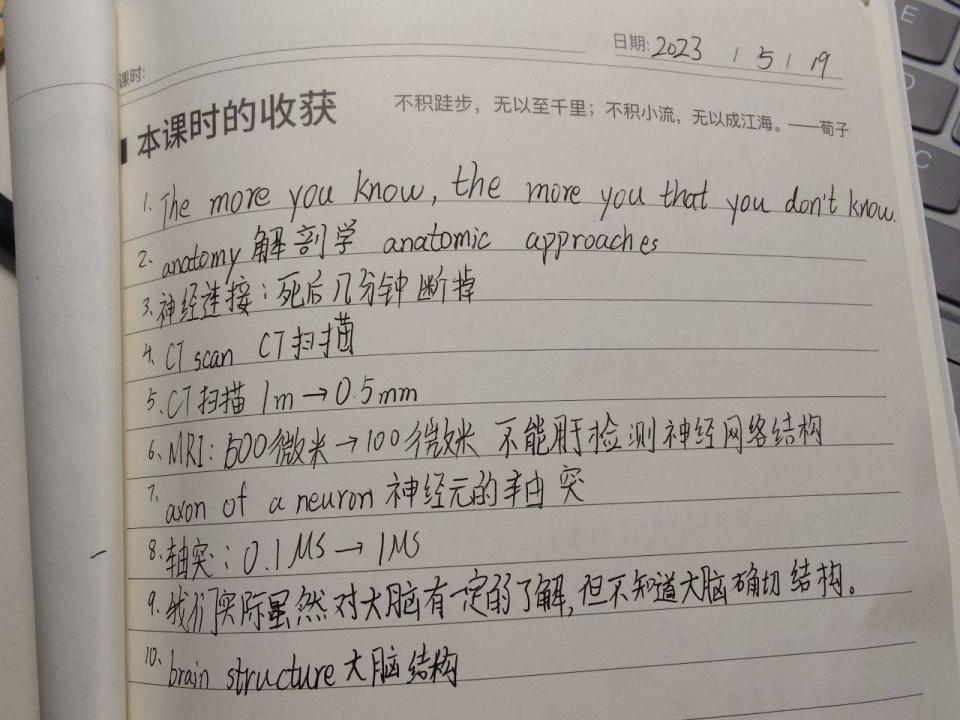 日期: 2023 / 5 / 19
课时:
本课时的收获
不积跬步，无以至千里；不积小流，无以成江海。——荀子
1. The more you know, the more you that you don't know.
2、anatomy 解剖学 anatomic approaches
3、神经连接：死后几分钟断掉
4、CT scan CT扫描
5、CT扫描 1m→0.5mm
6、MRI：500微米→100微米 不能用于检测神经网络结构
7、axon of a neuron 神经元的轴突
8、轴突：0.1MS→1MS
9、我们实际虽然对大脑有一定的了解,但不知道大脑确切结构。
10、brain structure 大脑结构
E
D
C